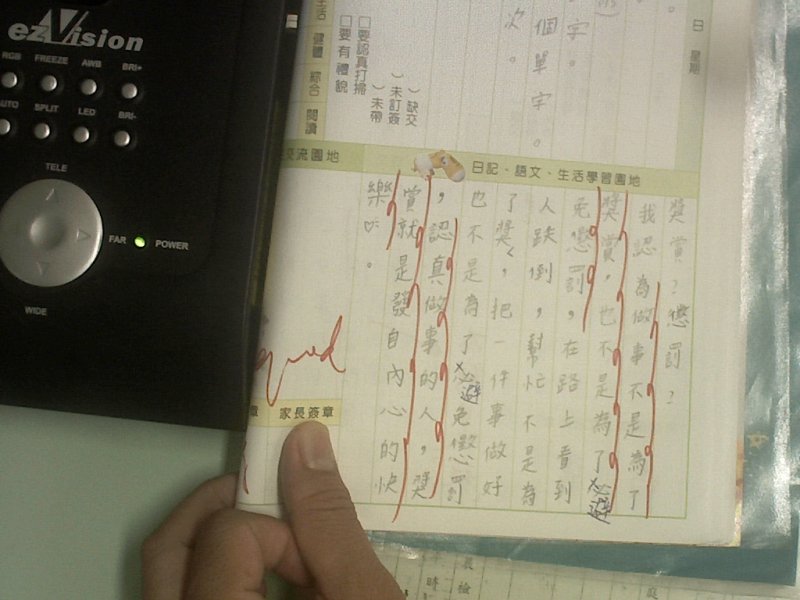 ezVision
RGB FREEZE AWB BRI+
AUTO SPLIT LED BRI-
TELE
FAR POWER
WIDE
日 星期
字。
個單字。
次。
）缺交
）未訂簽
）未帶
□要認真打掃
□要有禮貌
生活 健體 綜合 閱讀
交流園地
日記、語文、生活學習園地
獎賞？懲罰？
我認為做事不是為了
獎賞，也不是為了避
免懲罰，在路上看到
人跌倒，幫忙不是為
了獎，把一件事做好
也不是為了避免懲罰
，認真做事的人，獎
賞就是發自內心的快
樂♡。
good
章 家長簽章